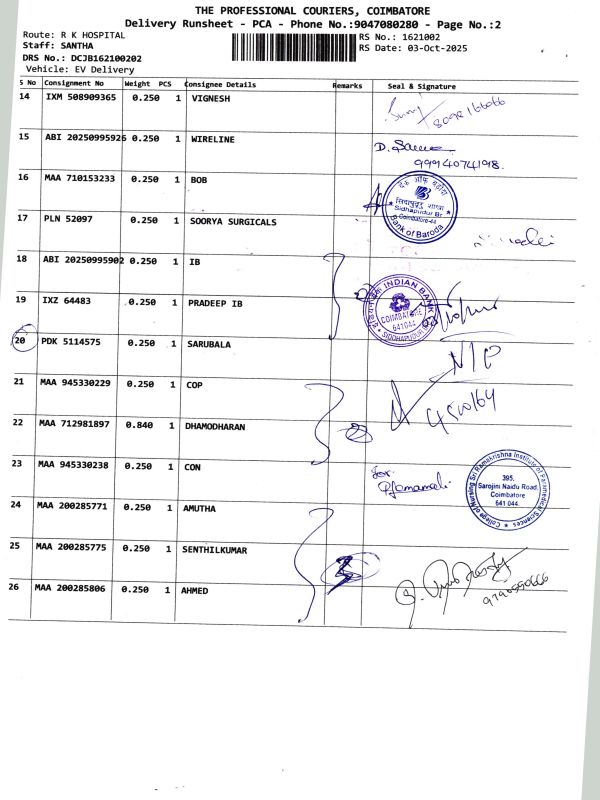 THE PROFESSIONAL COURIERS, COIMBATORE
Delivery Runsheet - PCA - Phone No.:9047080280 - Page No.:2
Route: R K HOSPITAL
RS No.: 1621002
Staff: SANTHA
RS Date: 03-Oct-2025
DRS No.: DCJB162100202
Vehicle: EV Delivery
S No Consignment No Weight PCS Consignee Details Remarks Seal & Signature
14 IXM 508909365 0.250 1 VIGNESH
15 ABI 20250995926 0.250 1 WIRELINE
D.
9994074198.
16 MAA 710153233 0.250 1 BOB
बैंक ऑफ़ बड़ौदा
Sidhapudur Br.
Coimbatore-44
Bank of Baroda
17 PLN 52097 0.250 1 SOORYA SURGICALS
18 ABI 20250995902 0.250 1 IB
19 IXZ 64483 0.250 1 PRADEEP IB
INDIAN BANK
COIMBATORE
641044
SIDDHAPUDUR
20 PDK 5114575 0.250 1 SARUBALA
21 MAA 945330229 0.250 1 COP
22 MAA 712981897 0.840 1 DHAMODHARAN
23 MAA 945330238 0.250 1 CON
for.
College of Nursing Sri Ramakrishna Institute of Paramedical Sciences
395,
Sarojini Naidu Road,
Coimbatore
641 044.
24 MAA 200285771 0.250 1 AMUTHA
25 MAA 200285775 0.250 1 SENTHILKUMAR
26 MAA 200285806 0.250 1 AHMED